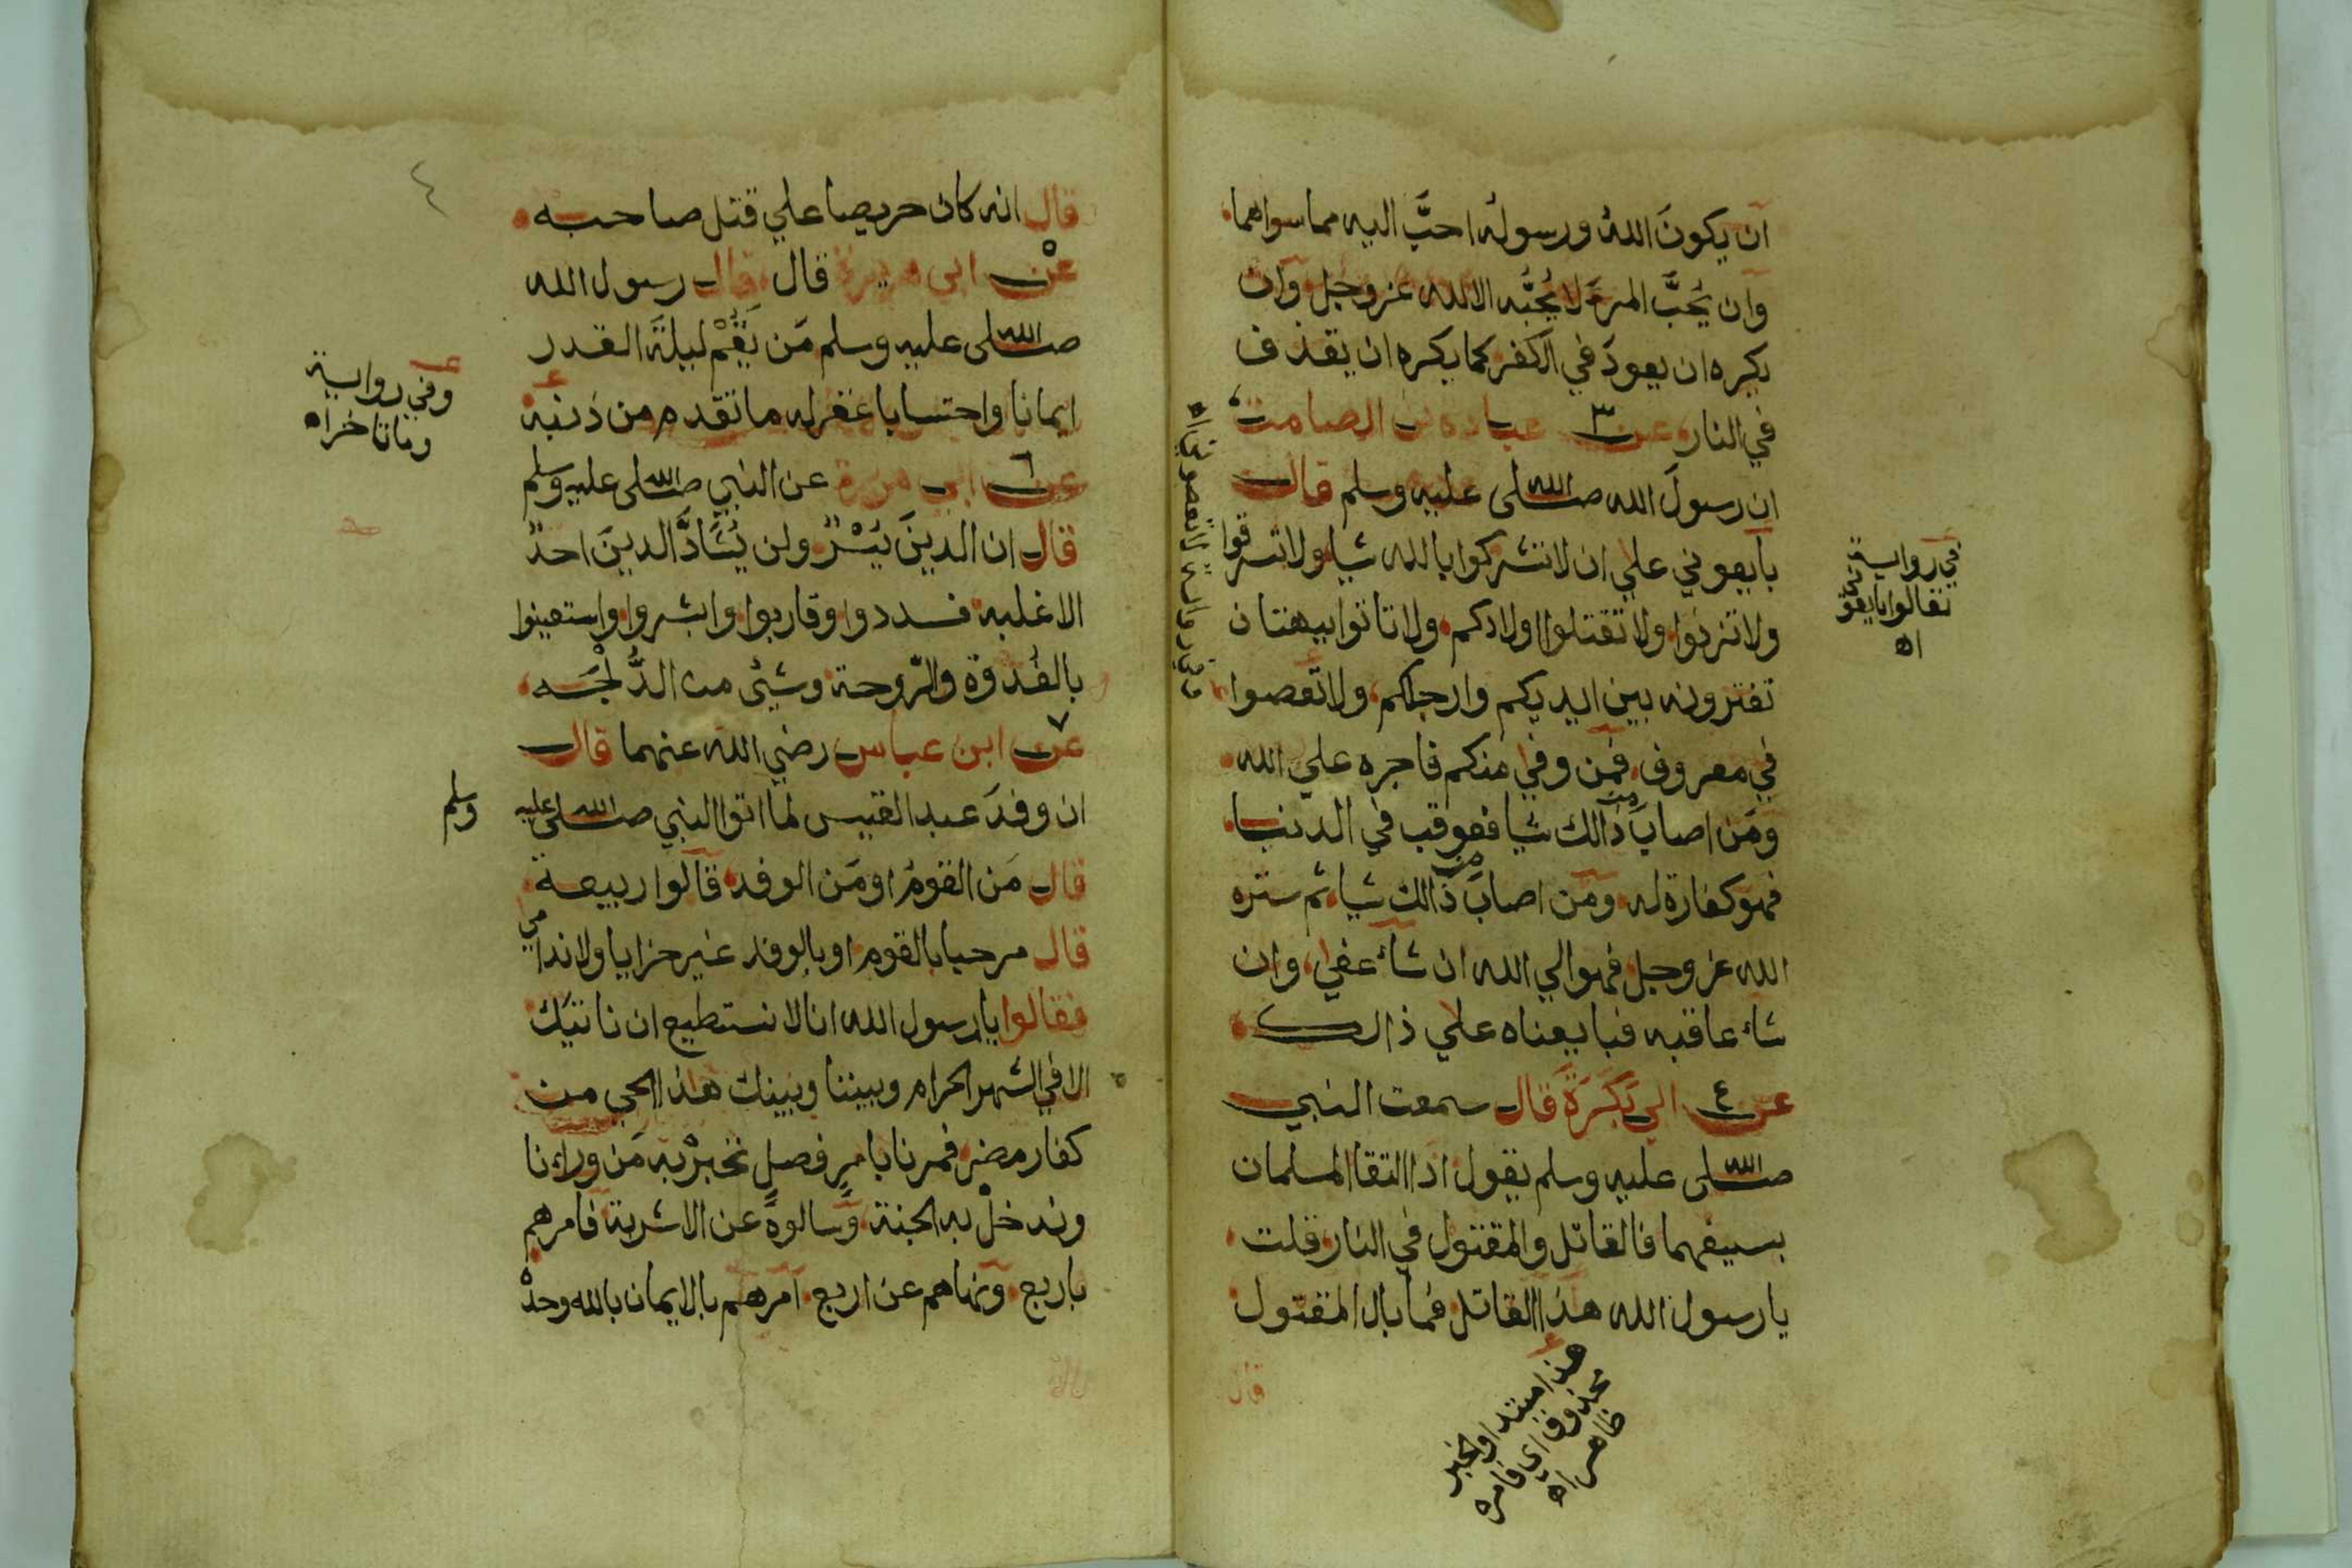 ان يكونَ اللهُ ورسولُه احبَّ اليه مما سواهما
وان يُحبَّ المرءَ لا يُحبُّه الا لله عز وجل وان
يكره ان يعودَ في الكفر كما يكره ان يقذف
في النار عن ٣ عباده بن الصامت
ان رسولَ الله صلى الله عليه وسلم قال
بايعوني علي ان لا تشركوا بالله شيا ولا تسرقوا
ولا تزنوا ولا تقتلوا اولادكم ولا تاتوا ببهتان
تفترونه بين ايديكم وارجلكم ولا تعصوا
في معروف فمن وفي منكم فاجره علي الله
ومَن اصابَ من ذالك شيا فعوقب في الدنيا
فهو كفارة له ومَن اصابَ من ذالك شيا ثم ستره
الله عز وجل فهو الي الله ان شاء عفي وان
شاء عاقبه فبايعناه علي ذالك
عن ٤ ابي بَكَرَةَ قال سمعت النبي
صلى الله عليه وسلم يقول اذا التقا المسلمان
بسيفهما فالقاتل والمقتول في النار قلت
يا رسول الله هذا القاتل فما بال المقتول
قال
في رواية
تقالوا بايعوني
اه
وفي رواية لا تعصوني اه
هذا مبتدا والخبر
محذوف اي فامره
ظاهر اه
٤
قال انه كان حريصا علي قتل صاحبه
عن ٥ ابي هريرة قال قال رسول الله
صلى الله عليه وسلم مَن يَقُمْ ليلةَ القدر
ايمانا واحتسابا غفر له ما تقدم من ذنبه
عن ٦ ابي هريرة عن النبي صلى الله عليه وسلم
قال ان الدينَ يُسْرٌ ولن يُشَادَّ الدينَ احدٌ
الا غلبه فسددوا وقاربوا وابشروا واستعينوا
بالغُدْوة والرَّوحة وشيءٍ من الدُّلْجَه
عن ٧ ابن عباس رضي الله عنهما قال
ان وفدَ عبد القيس لما اتوا النبي صلى الله عليه وسلم
قال مَن القومُ او مَن الوفد قالوا ربيعة
قال مرحبا بالقوم او بالوفد غير خزايا ولا ندامي
فقالوا يا رسول الله انا لا نستطيع ان ناتيَك
الا في الشهر الحرام وبيننا وبينك هذا الحي من
كفار مضر فمرنا بامرٍ فصلٍ نخبرْ به مَن وراءنا
وندخلْ به الجنة وسالوه عن الاشربة فامرهم
باربع ونهاهم عن اربع امرهم بالايمان بالله وحده
قال
وفي رواية
وما تاخر اه